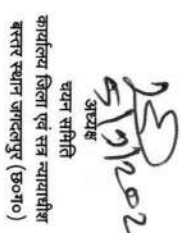 5/9/202
अध्यक्ष
चयन समिति
कार्यालय जिला एवं सत्र न्यायाधीश
बस्तर स्थान जगदलपुर (छ0ग0)